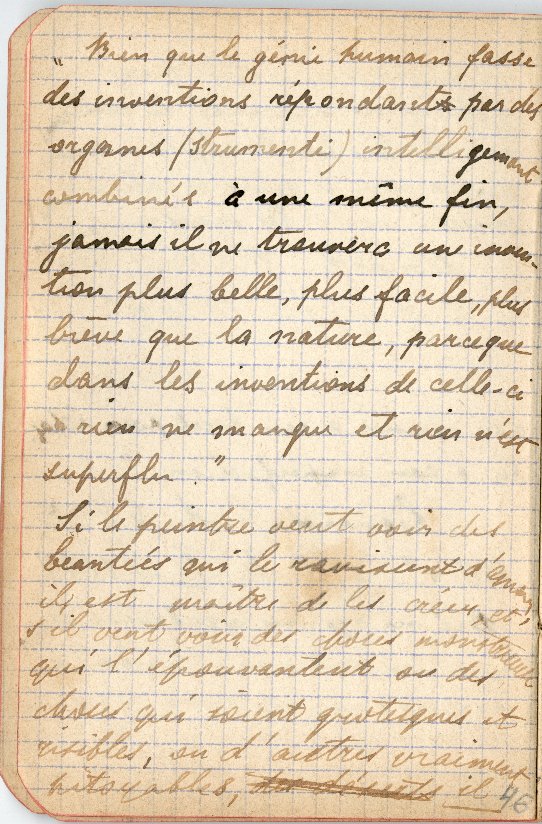 „ Bien que le génie humain fasse
des inventions répondants par des
organes (strumenti) intelligemment
combinés à une même fin,
jamais il ne trouvera une inven-
tion plus belle, plus facile, plus
brève que la nature, parceque
dans les inventions de celle-ci
rien ne manque et rien n'est
superflu."
Si le peintre veut voir des
beautées qui le ravissent d'amour
il est maître de les créer, et
s'il veut voir des choses monstrueuses
qui l'épouvantent ou des
choses qui soient grotesques et
risibles, ou d'autres vraiment
pitoyables, il
46